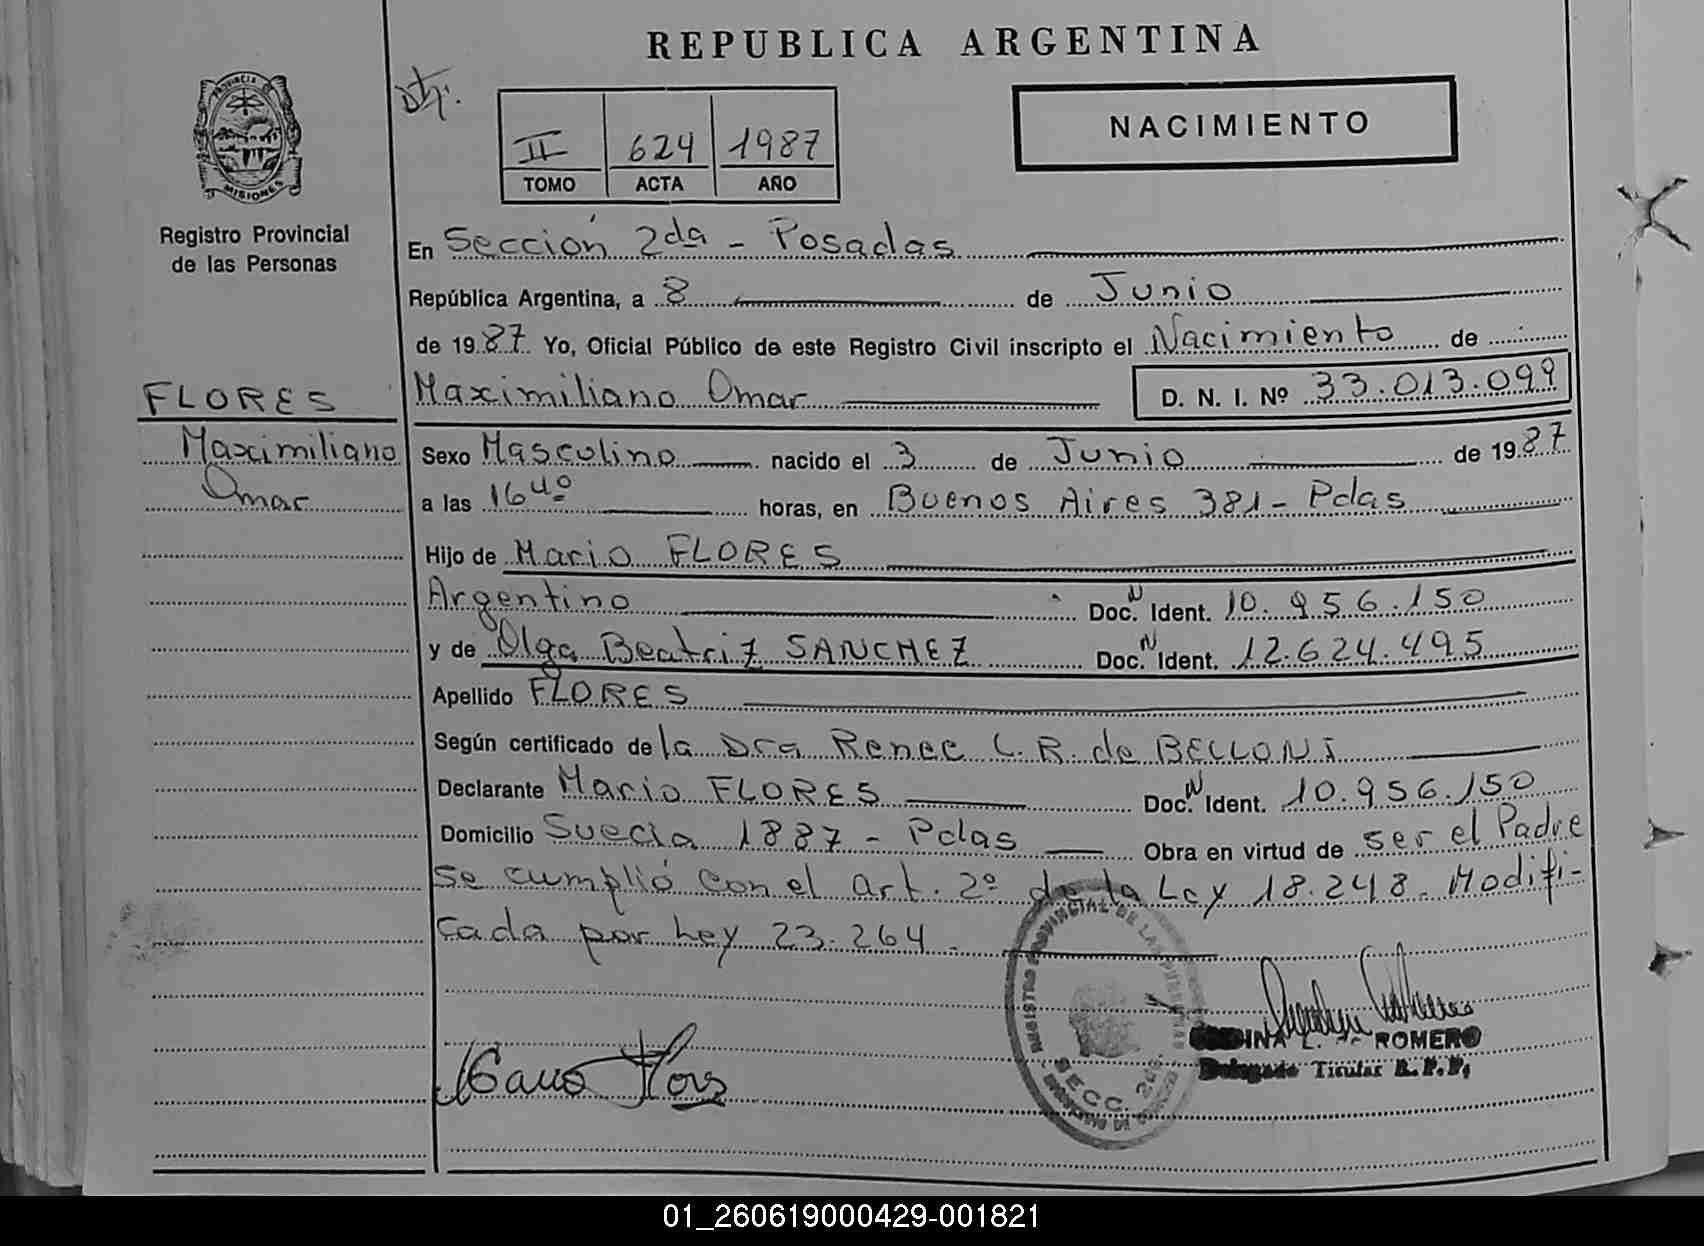 REPUBLICA ARGENTINA
PROVINCIA
MISIONES
Registro Provincial
de las Personas
II 624 1987
TOMO ACTA AÑO
NACIMIENTO
En Sección 2da - Posadas
República Argentina, a 8 de Junio
de 1987 Yo, Oficial Público de este Registro Civil inscripto el Nacimiento de
Maximiliano Omar D. N. I. Nº 33.013.099
FLORES
Maximiliano
Omar
Sexo Masculino nacido el 3 de Junio de 1987
a las 16 40 horas, en Buenos Aires 381 - Pdas
Hijo de Mario FLORES
Argentino Doc. N Ident. 10.956.150
y de Olga Beatriz SANCHEZ Doc. N Ident. 12.624.495
Apellido FLORES
Según certificado de la Dra Renee L. R. de BELLONI
Declarante Mario FLORES Doc. N Ident. 10.956.150
Domicilio Suecia 1887 - Pdas Obra en virtud de ser el Padre
Se cumplió con el art. 2º de la Ley 18.248. Modifi-
cada por Ley 23.264.
SECC. 2da
L. de ROMERO
Delegada Titular R.P.P.
01_260619000429-001821